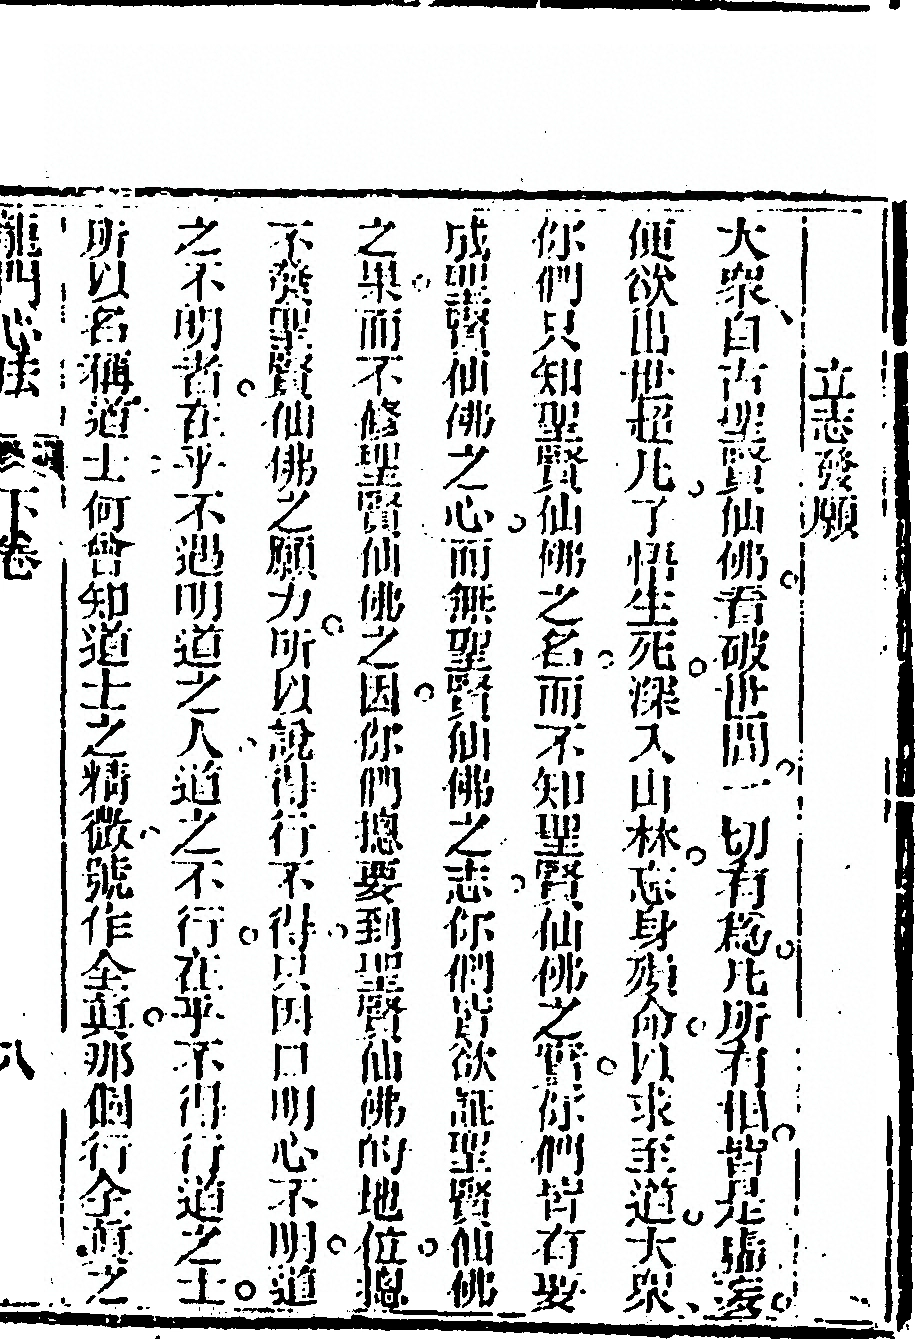 立志發願
大衆自古聖賢仙佛看破世間一切有爲凡所有相皆是虛妄
便欲出世超凡了悟生死深入山林忘身殞命以求至道大衆
你們只知聖賢仙佛之名而不知聖賢仙佛之實你們皆有要
成聖賢仙佛之心而無聖賢仙佛之志你們皆欲証聖賢仙佛
之果而不修聖賢仙佛之因你們摠要到聖賢仙佛的地位摠
不發聖賢仙佛之願力所以說得行不得只因口明心不明道
之不明者在乎不遇明道之人道之不行在乎不得行道之士
所以名稱道士何曾知道士之精微號作全眞那個行全眞之
龍門心法 下卷 八